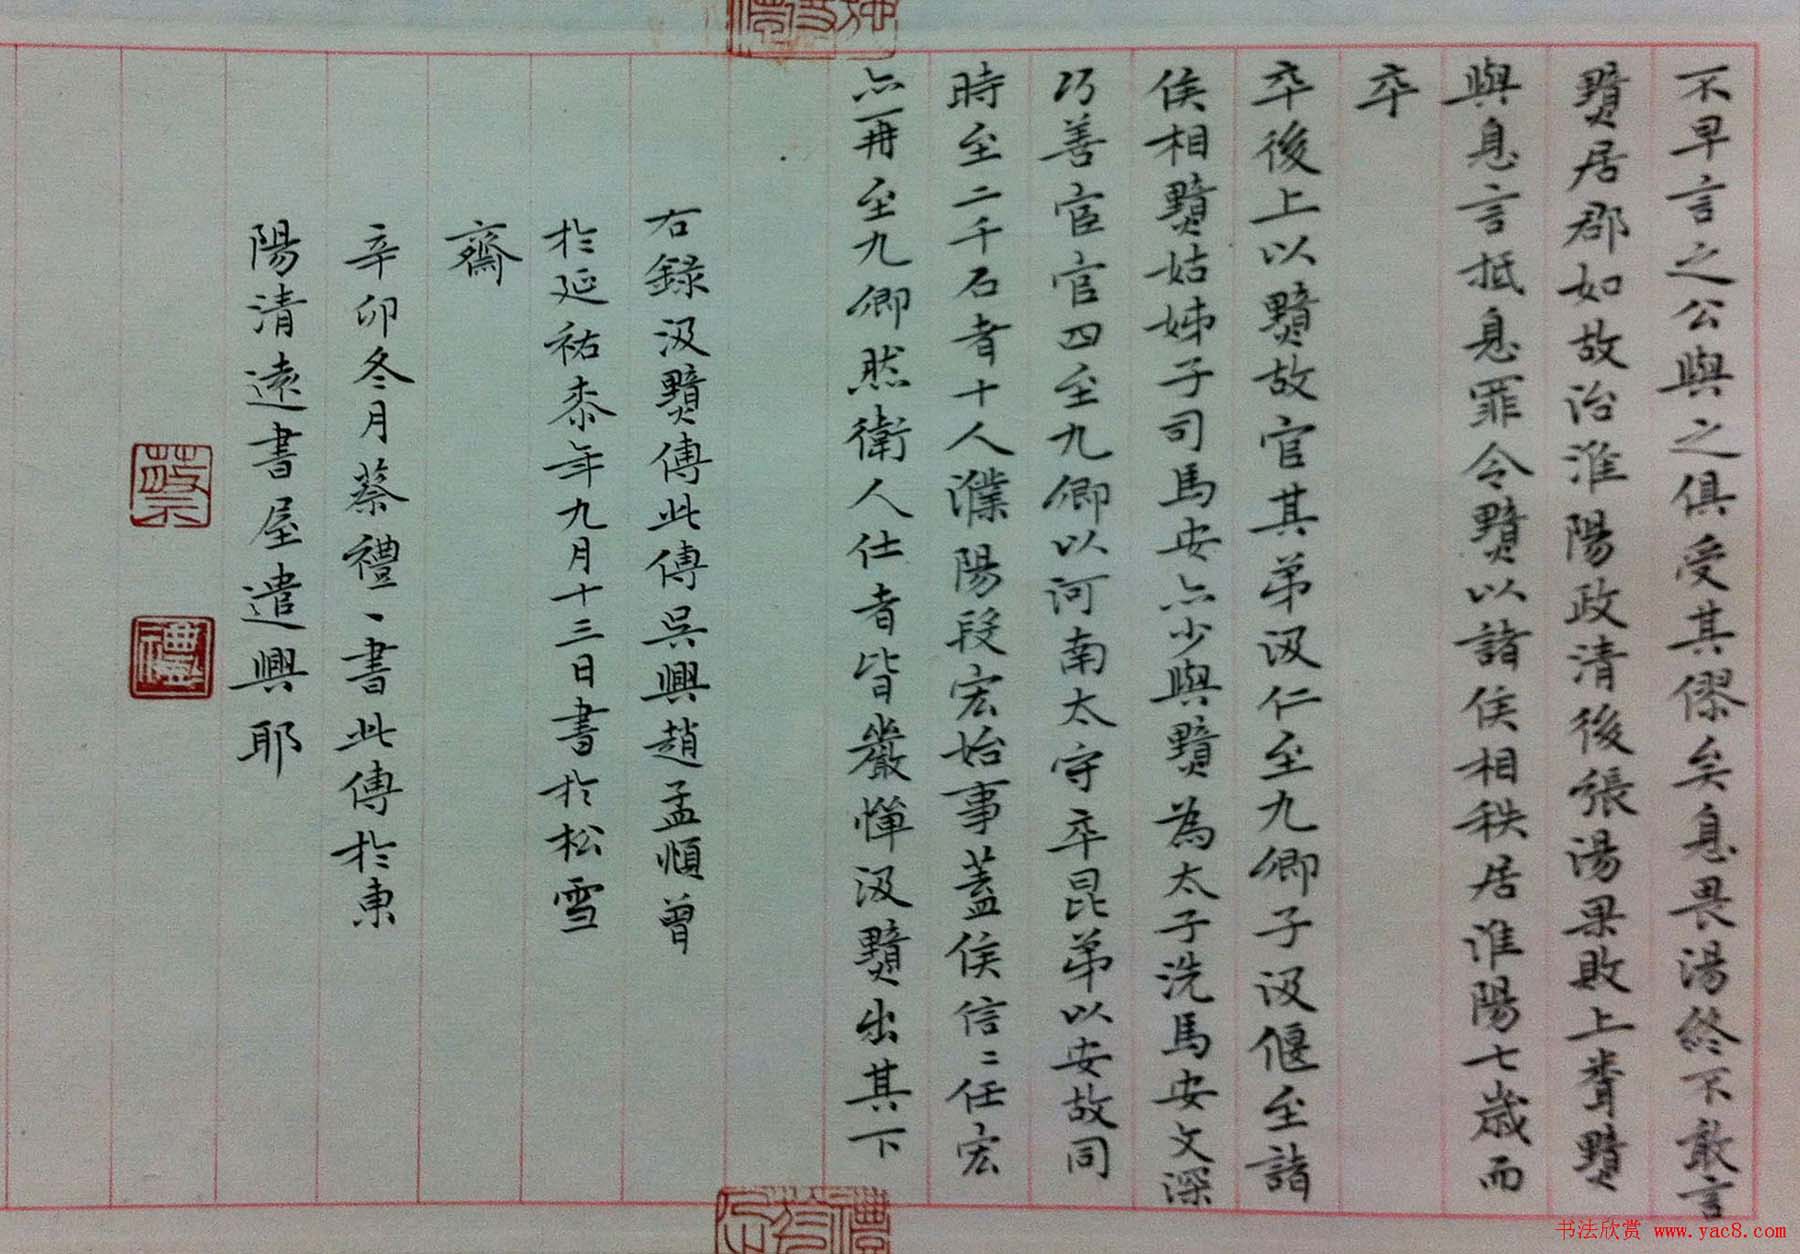 不早言之公與之俱受其僇矣息畏湯終不敢言
黯居郡如故治淮陽政清後張湯果敗上聞黯
與息言抵息罪令黯以諸侯相秩居淮陽七歲而
卒
卒後上以黯故官其弟汲仁至九卿子汲偃至諸
侯相黯姑姊子司馬安亦少與黯為太子洗馬安文深
巧善宦官四至九卿以河南太守卒昆弟以安故同
時至二千石者十人濮陽段宏始事蓋侯信二任宏
亦再至九卿然衛人仕者皆嚴憚汲黯出其下
右錄汲黯傳此傳吳興趙孟頫曾
於延祐柒年九月十三日書於松雪
齋
辛卯冬月蔡禮丶書此傳於東
陽清遠書屋遣興耶
蔡
禮
书法欣赏 www.yac8.com